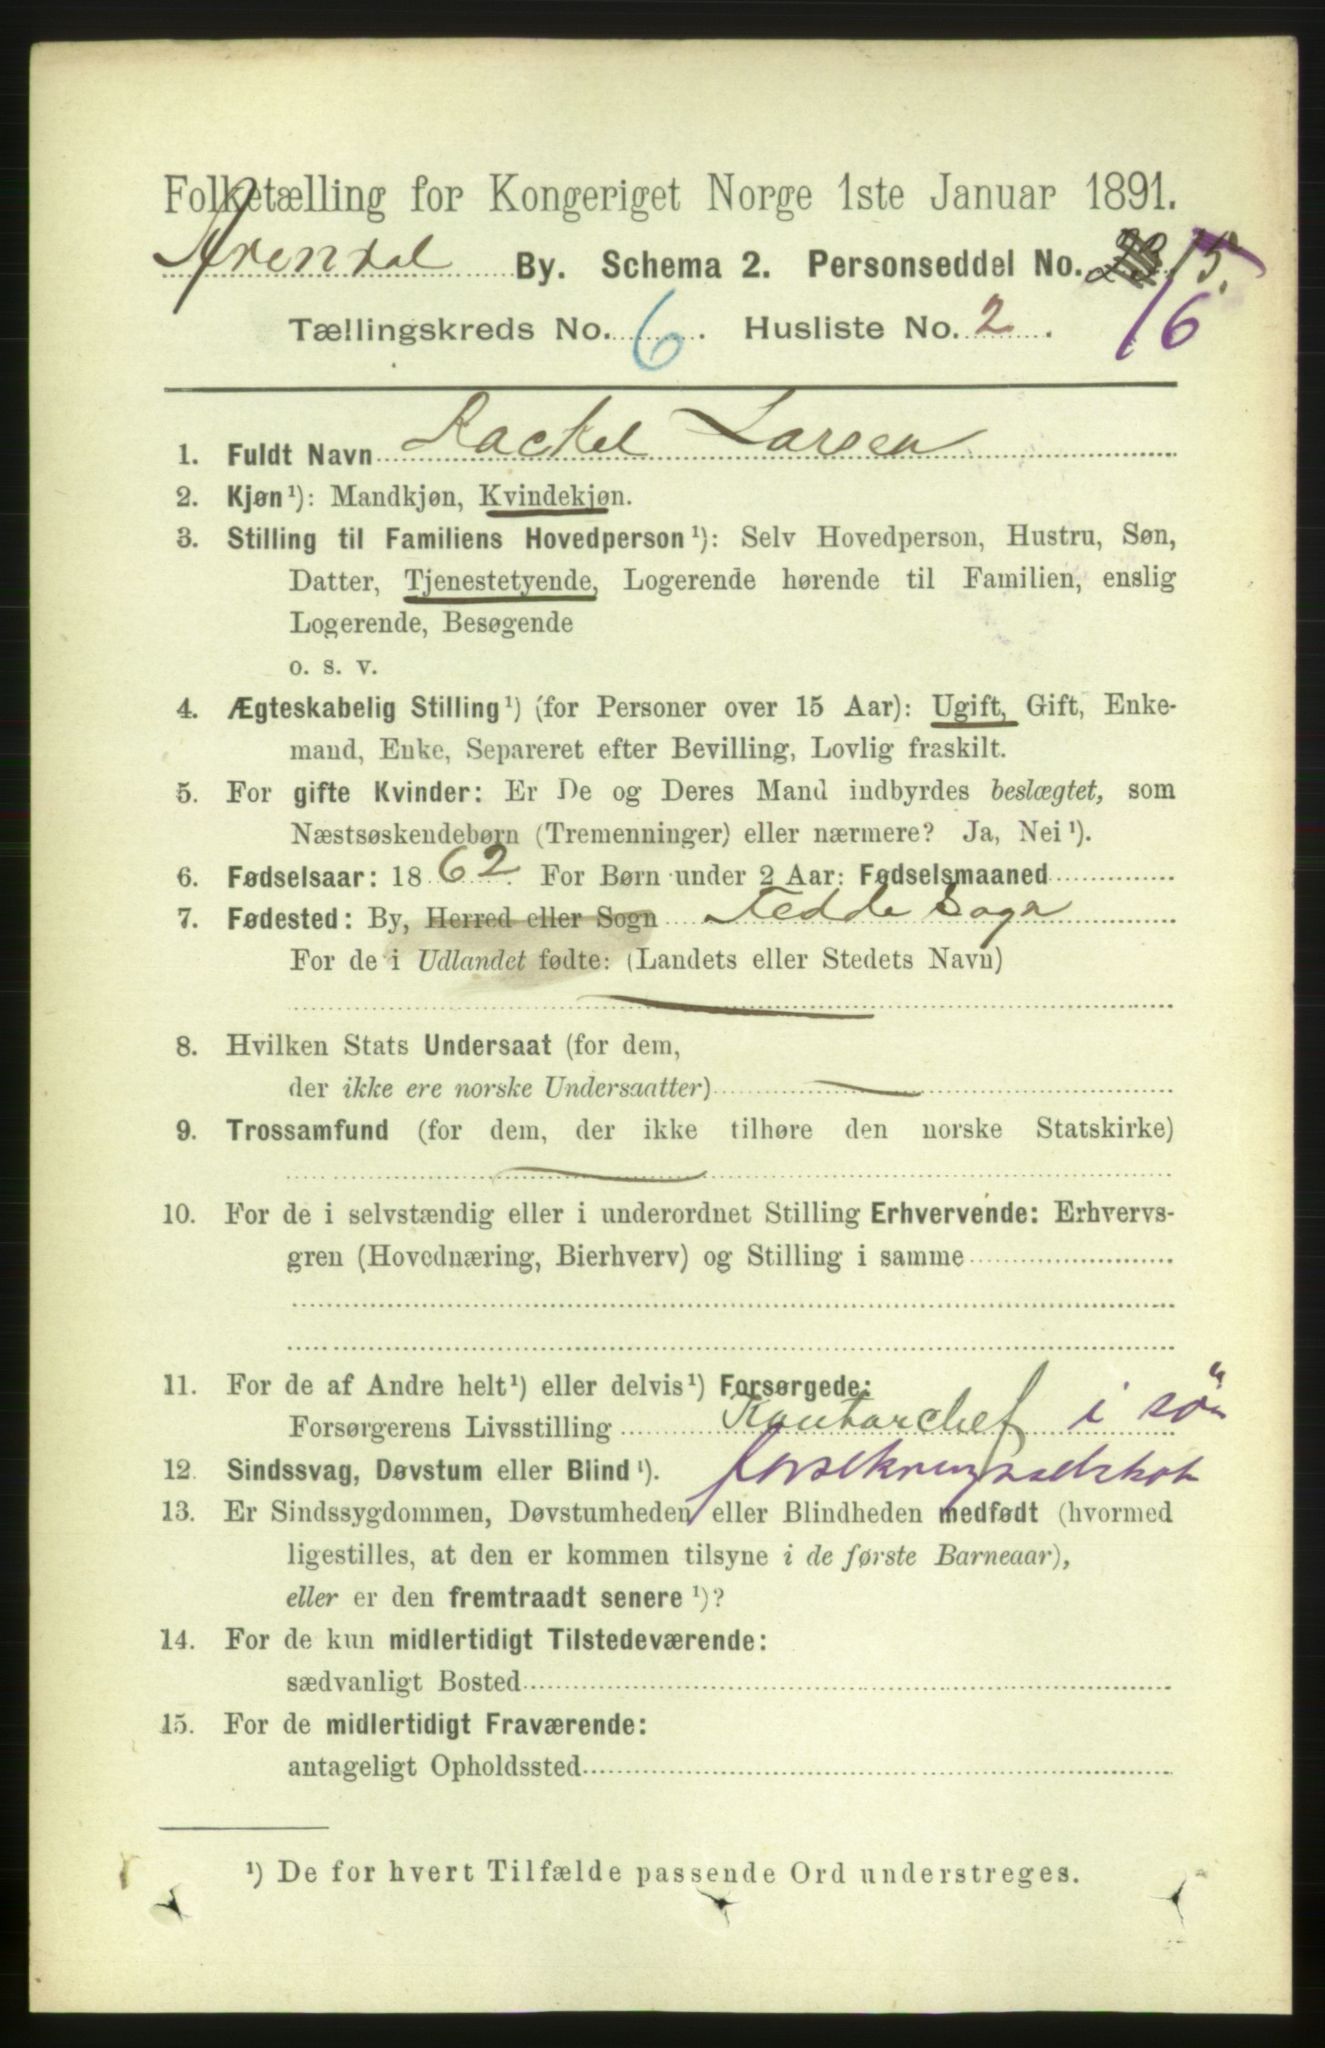 Folketælling for Kongeriget Norge 1ste Januar 1891.
Arendal By. Schema 2. Personseddel No. 15.
Tællingskreds No. 6. Husliste No. 2. 16
1. Fuldt Navn Rackel Larsen
2. Kjøn¹): Mandkjøn, Kvindekjøn.
3. Stilling til Familiens Hovedperson¹): Selv Hovedperson, Hustru, Søn,
Datter, Tjenestetyende, Logerende hørende til Familien, enslig
Logerende, Besøgende
o. s. v.
4. Ægteskabelig Stilling¹) (for Personer over 15 Aar): Ugift, Gift, Enke-
mand, Enke, Separeret efter Bevilling, Lovlig fraskilt.
5. For gifte Kvinder: Er De og Deres Mand indbyrdes beslægtet, som
Næstsøskendebørn (Tremenninger) eller nærmere? Ja, Nei¹).
6. Fødselsaar: 1862. For Børn under 2 Aar: Fødselsmaaned
7. Fødested: By, Herred eller Sogn Fedde Sogn
For de i Udlandet fødte: (Landets eller Stedets Navn)
8. Hvilken Stats Undersaat (for dem,
der ikke ere norske Undersaatter)
9. Trossamfund (for dem, der ikke tilhøre den norske Statskirke)
10. For de i selvstændig eller i underordnet Stilling Erhvervende: Erhvervs-
gren (Hovednæring, Bierhverv) og Stilling i samme
11. For de af Andre helt¹) eller delvis¹) Forsørgede:
Forsørgerens Livsstilling Kontorchef i sø
12. Sindssvag, Døvstum eller Blind¹).
13. Er Sindssygdommen, Døvstumheden eller Blindheden medfødt (hvormed
ligestilles, at den er kommen tilsyne i de første Barneaar),
eller er den fremtraadt senere¹)?
14. For de kun midlertidigt Tilstedeværende:
sædvanligt Bosted
15. For de midlertidigt Fraværende:
antageligt Opholdssted
¹) De for hvert Tilfælde passende Ord understreges.